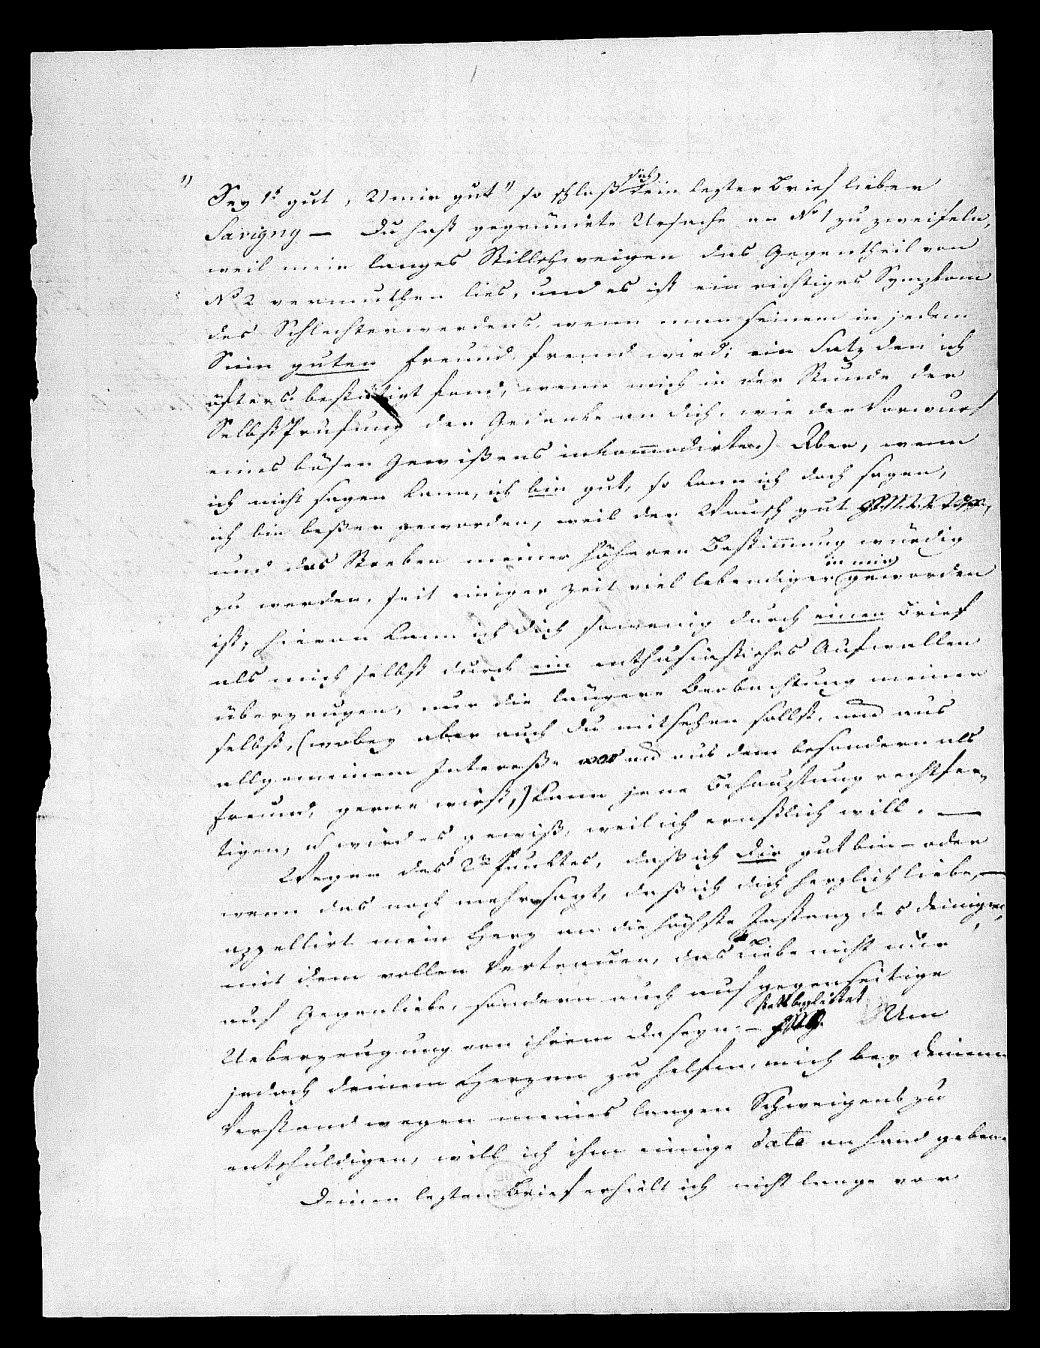 "Sey 1t gut, 2 mir gut" so schloß sich dein lezter Brief lieber
Savigny — Du hast gegründete Ursache an No 1 zu zweifeln,
weil mein langes Stillschweigen das Gegentheil von
No 2 vermuthen lies, und es ist ein richtiges Symptom
des Schlechterwerdens, wenn man seinem in jedem
Sinn guten Freund fremd wird; ein Satz den ich
öfters bestätigt fand, wenn mich in der Stunde der
Selbstprüfung der Gedanke an dich, wie der Vorwurf
eines bösen Gewißens inkommodirte.) Aber, wenn
ich nicht sagen kann, ich bin gut, so kann ich doch sagen,
ich bin beßer geworden, weil der Wunsch gut
und das Streben meiner höheren Bestimmung würdig
zu werden, seit einiger Zeit viel lebendiger in mir geworden
ist; hievon kann ich dich sowenig durch einen Brief
als mich selbst durch ein enthusiastisches Aufwallen
überzeugen, nur die längere Beobachtung meiner
selbst, (wobey aber auch du mitsehen sollst, und aus
allgemeinem Intereße und aus dem besondern als
Freund, gerne wirst,) kann jene Behauptung rechtfer„
tigen, u wird es gewiß, weil ich ernstlich will. —
Wegen des 2ten Punktes, daß ich dir gut bin — oder
wenn das noch mehr sagt, daß ich dich herzlich liebe, —
appellirt mein Herz an die höchste Instanz des deinigen,
mit dem vollen Vertrauen, das Liebe nicht nur
auf Gegenliebe, sondern auch auf gegenseitige
Ueberzeugung von ihrem Daseyn — Um
jedoch deinem Herzen zu helfen, mich bey deinem
Verstand wegen meines langen Schweigens zu
entschuldigen, will ich ihm einige Data an Hand geben
Deinen lezten Brief erhielt ich nicht lange vor